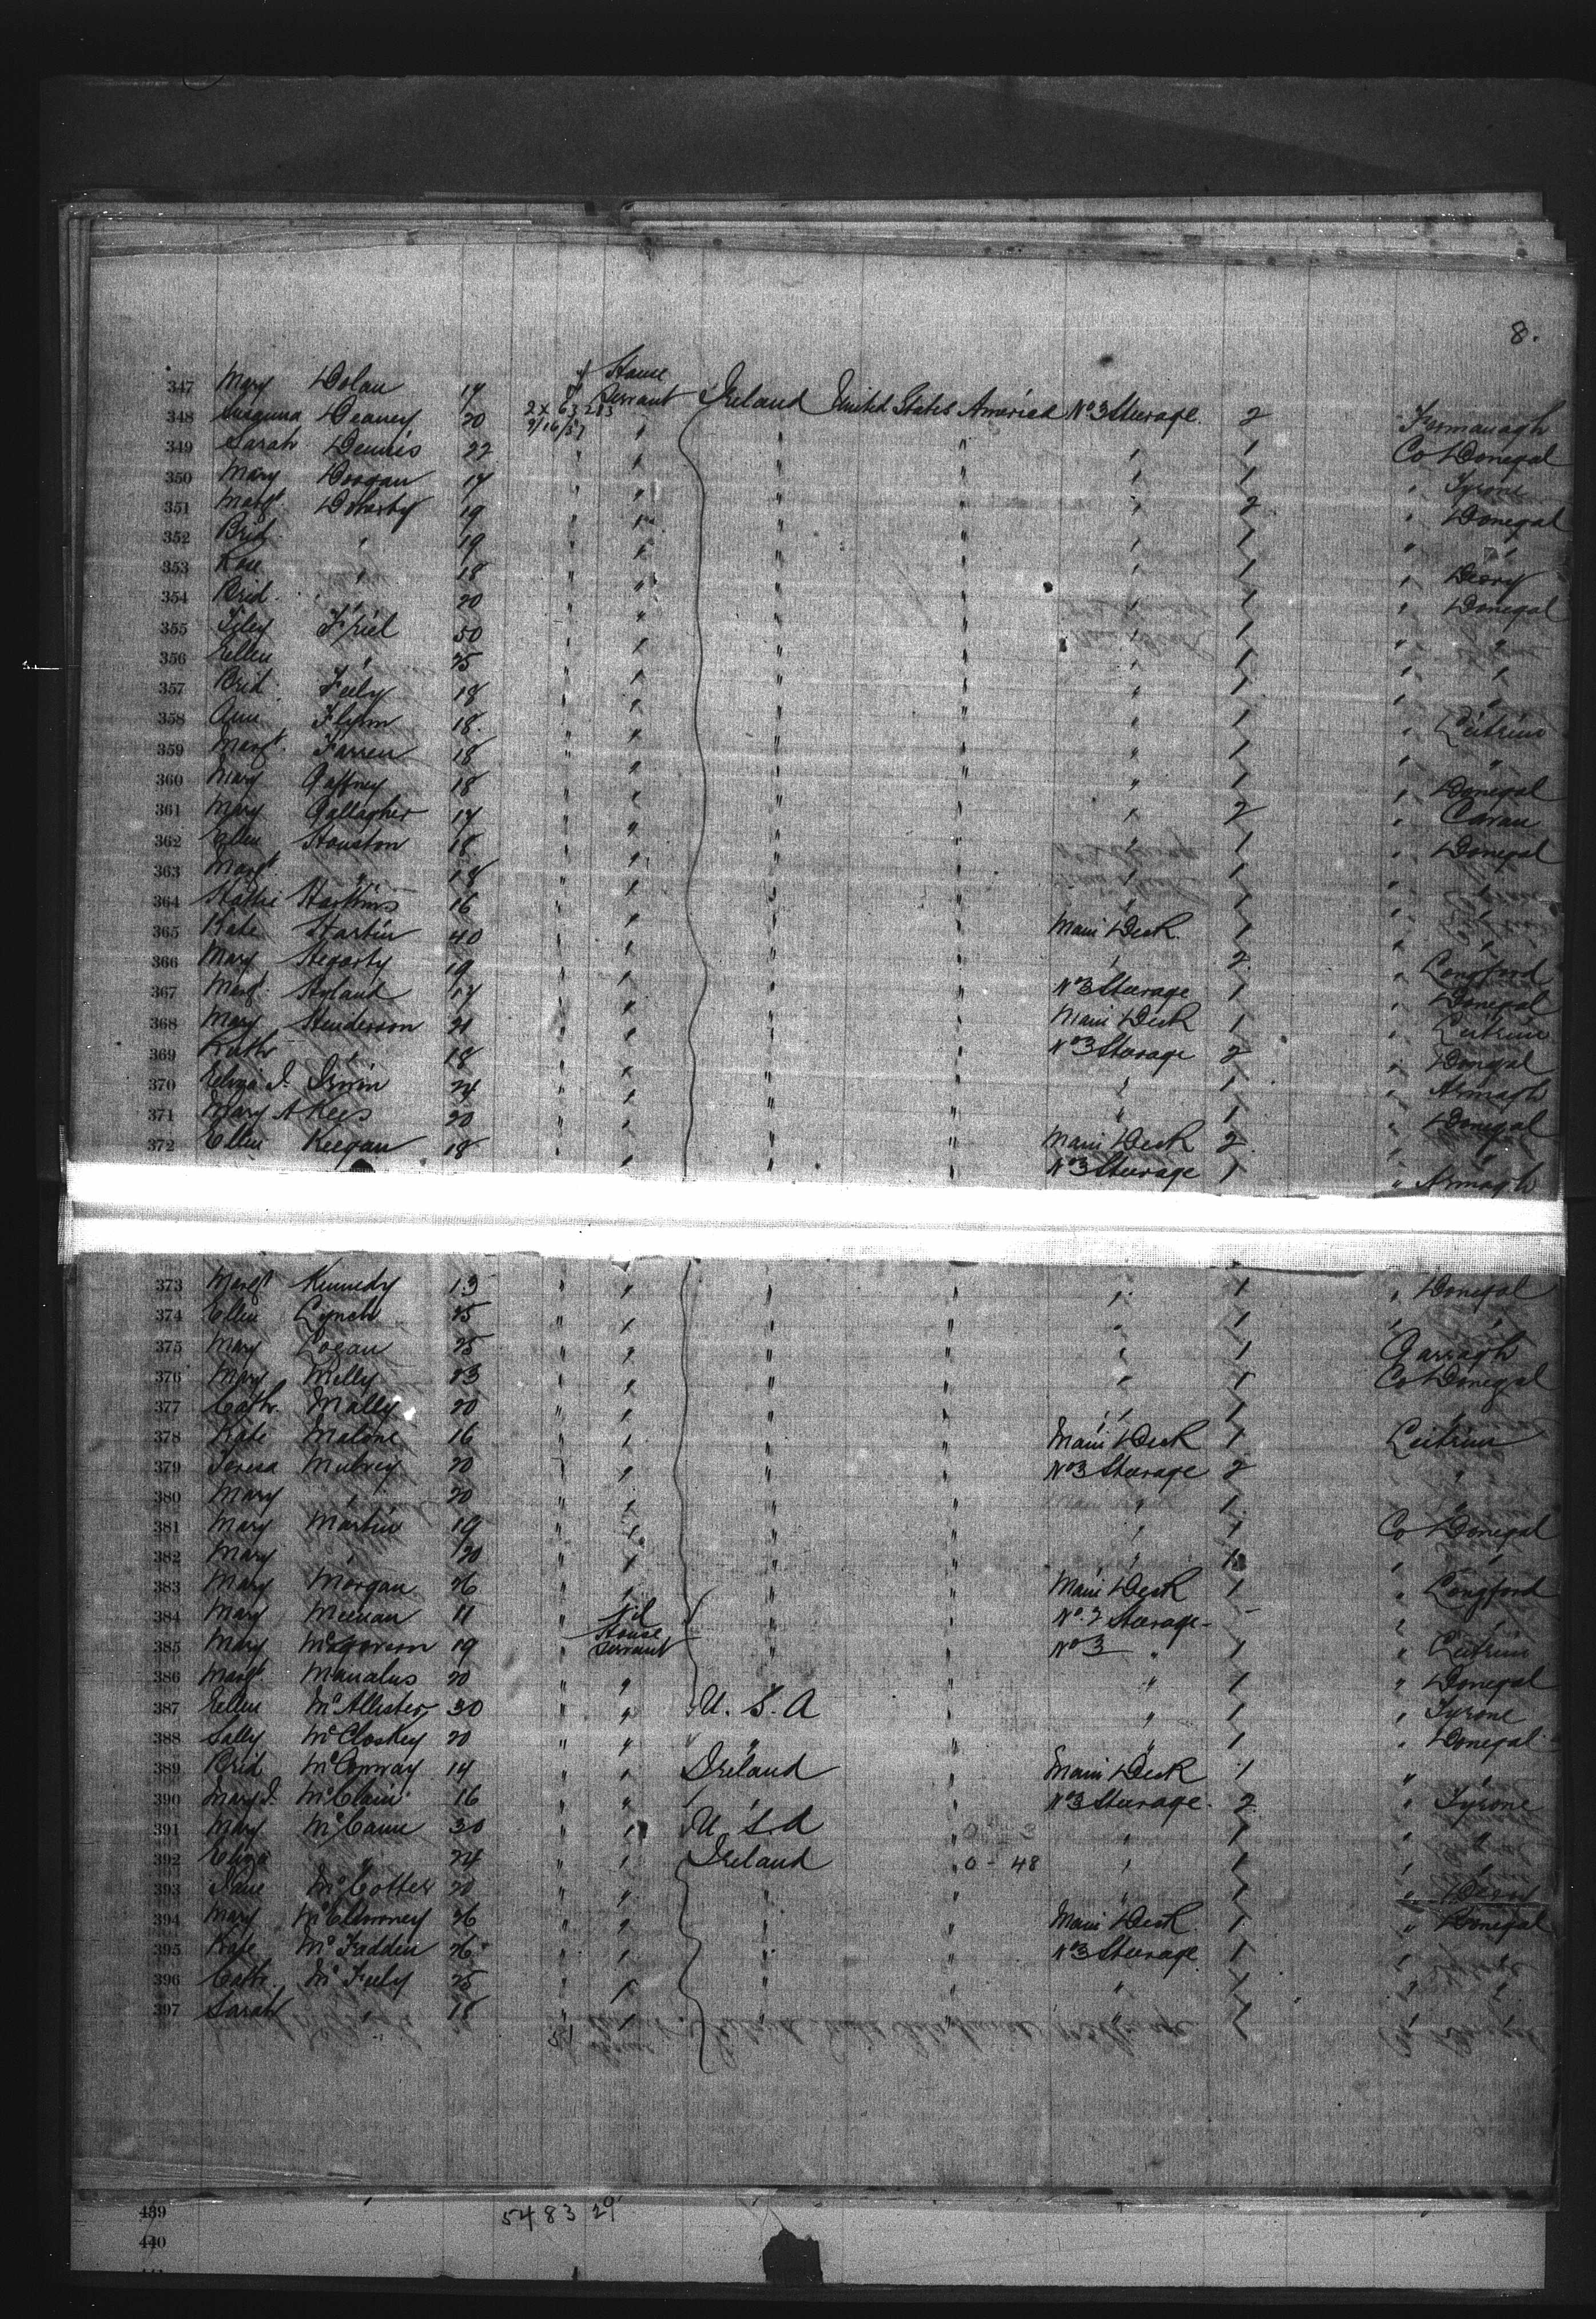 8.
347 Mary Dolan 17 f House Servant Ireland United States America No 3 Steerage 2 Fermanagh
348 Susanna Deaney 20 2 x 63 283 " " " " 1 Co Donegal
9/16/57
349 Sarah Dennis 22 " " " " " 1 " Tyrone
350 Mary Doogan 17 " " " " " 2 " Donegal
351 Margt Doherty 19 " " " " " 1 " "
352 Brid " 19 " " " " " 1 " Derry
353 Rose " 18 " " " " " 1 " Donegal
354 Brid " 20 " " " " " 1 " "
355 Friel 50 " " " " " 1 " "
356 Ellen " 25 " " " " " 1 " "
357 Brid Feely 18 " " " " " 1 " Leitrim
358 Ann Flynn 18 " " " " " 1 " "
359 Margt Farren 18 " " " " " 1 " Donegal
360 Mary Gaffney 18 " " " " " 2 " Cavan
361 Mary Gallagher 17 " " " " " 1 " Donegal
362 Ellen Houston 18 " " " " " 1 " "
363 Margt " 18 " " " " " 1 " "
364 Hattie Harkins 16 " " " " Main Deck 1 " "
365 Kate Hartin 40 " " " " " 2 " Longford
366 Mary Hegarty 19 " " " " No 3 Steerage 1 " Donegal
367 Margt Hyland 17 " " " " Main Deck 1 " Leitrim
368 Mary Henderson 21 " " " " No 3 Steerage 2 " Donegal
369 Kath " 18 " " " " " 1 " Armagh
370 Eliza J. Irwin 24 " " " " " 1 " Donegal
371 Mary A Kees 20 " " " " Main Deck 2 " "
372 Ellen Keegan 18 " " " " No 3 Steerage 1 " Armagh
373 Margt Kennedy 13 " " " " " 1 " Donegal
374 Ellen Lynch 25 " " " " " 1 " "
375 Mary Logan 25 " " " " " 1 Garvagh
376 Mary 23 " " " " " 1 Co Donegal
377 Cath. Mally 20 " " " " " 1 "
378 Kate Malone 16 " " " " Main Deck 1 Leitrim
379 Teresa Mulvey 20 " " " " No 3 Steerage 2 "
380 Mary " 20 " " " " " 1 "
381 Mary Martin 19 " " " " " 1 Co Donegal
382 Mary " 20 " " " " " 1 " "
383 Mary Morgan 26 " " " " Main Deck 1 " Longford
384 Mary Meenan 11 " Nil " " No. 2 Steerage - " "
385 Mary McGovern 19 " House Servant " " No 3 " 1 " Leitrim
386 Margt Manalus 20 " " " " " 1 " Donegal
387 Ellen McAllister 30 " " U. S. A " " 1 " Tyrone
388 Sally McCloskey 20 " " " " " 1 " Donegal
389 Brid McConway 14 " " Ireland " Main Deck 1 " "
390 Mary J. McClain 16 " " " " No 3 Steerage 2 " Tyrone
391 Mary McCann 30 " " U. S. A " " 1 " "
392 Eliza " 24 " " Ireland " 0 - 48 " 1 " "
393 Jane McCotter 20 " " " " " 1 " Derry
394 Mary McElhinney 26 " " " " Main Deck 1 " Donegal
395 Kate McFadden 26 " " " " No 3 Steerage 1 " "
396 Cath. McFeely 25 " " " " " 1 " "
397 Sarah " 18 " " " " " 1 "
439 5483 29
440